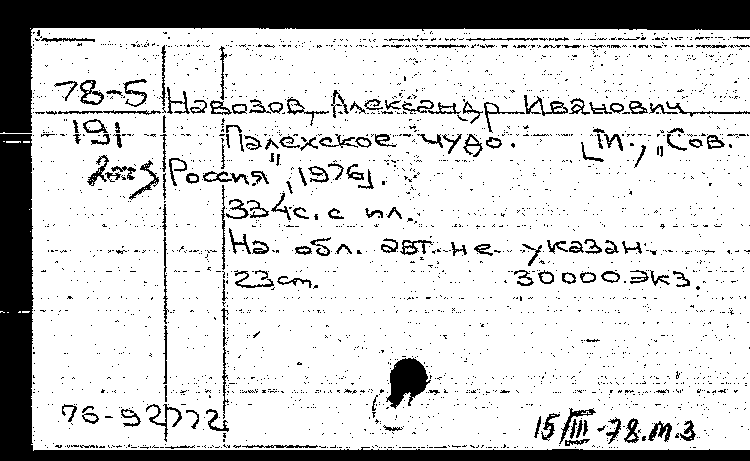 78-5 Навозов, Александр Иванович.
191 Палехское чудо. [М., "Сов.
Россия", 1976].
334с. с ил.
На обл. авт. не указан.
23см. 30000.экз.
76-92772
15/III-78.м.з